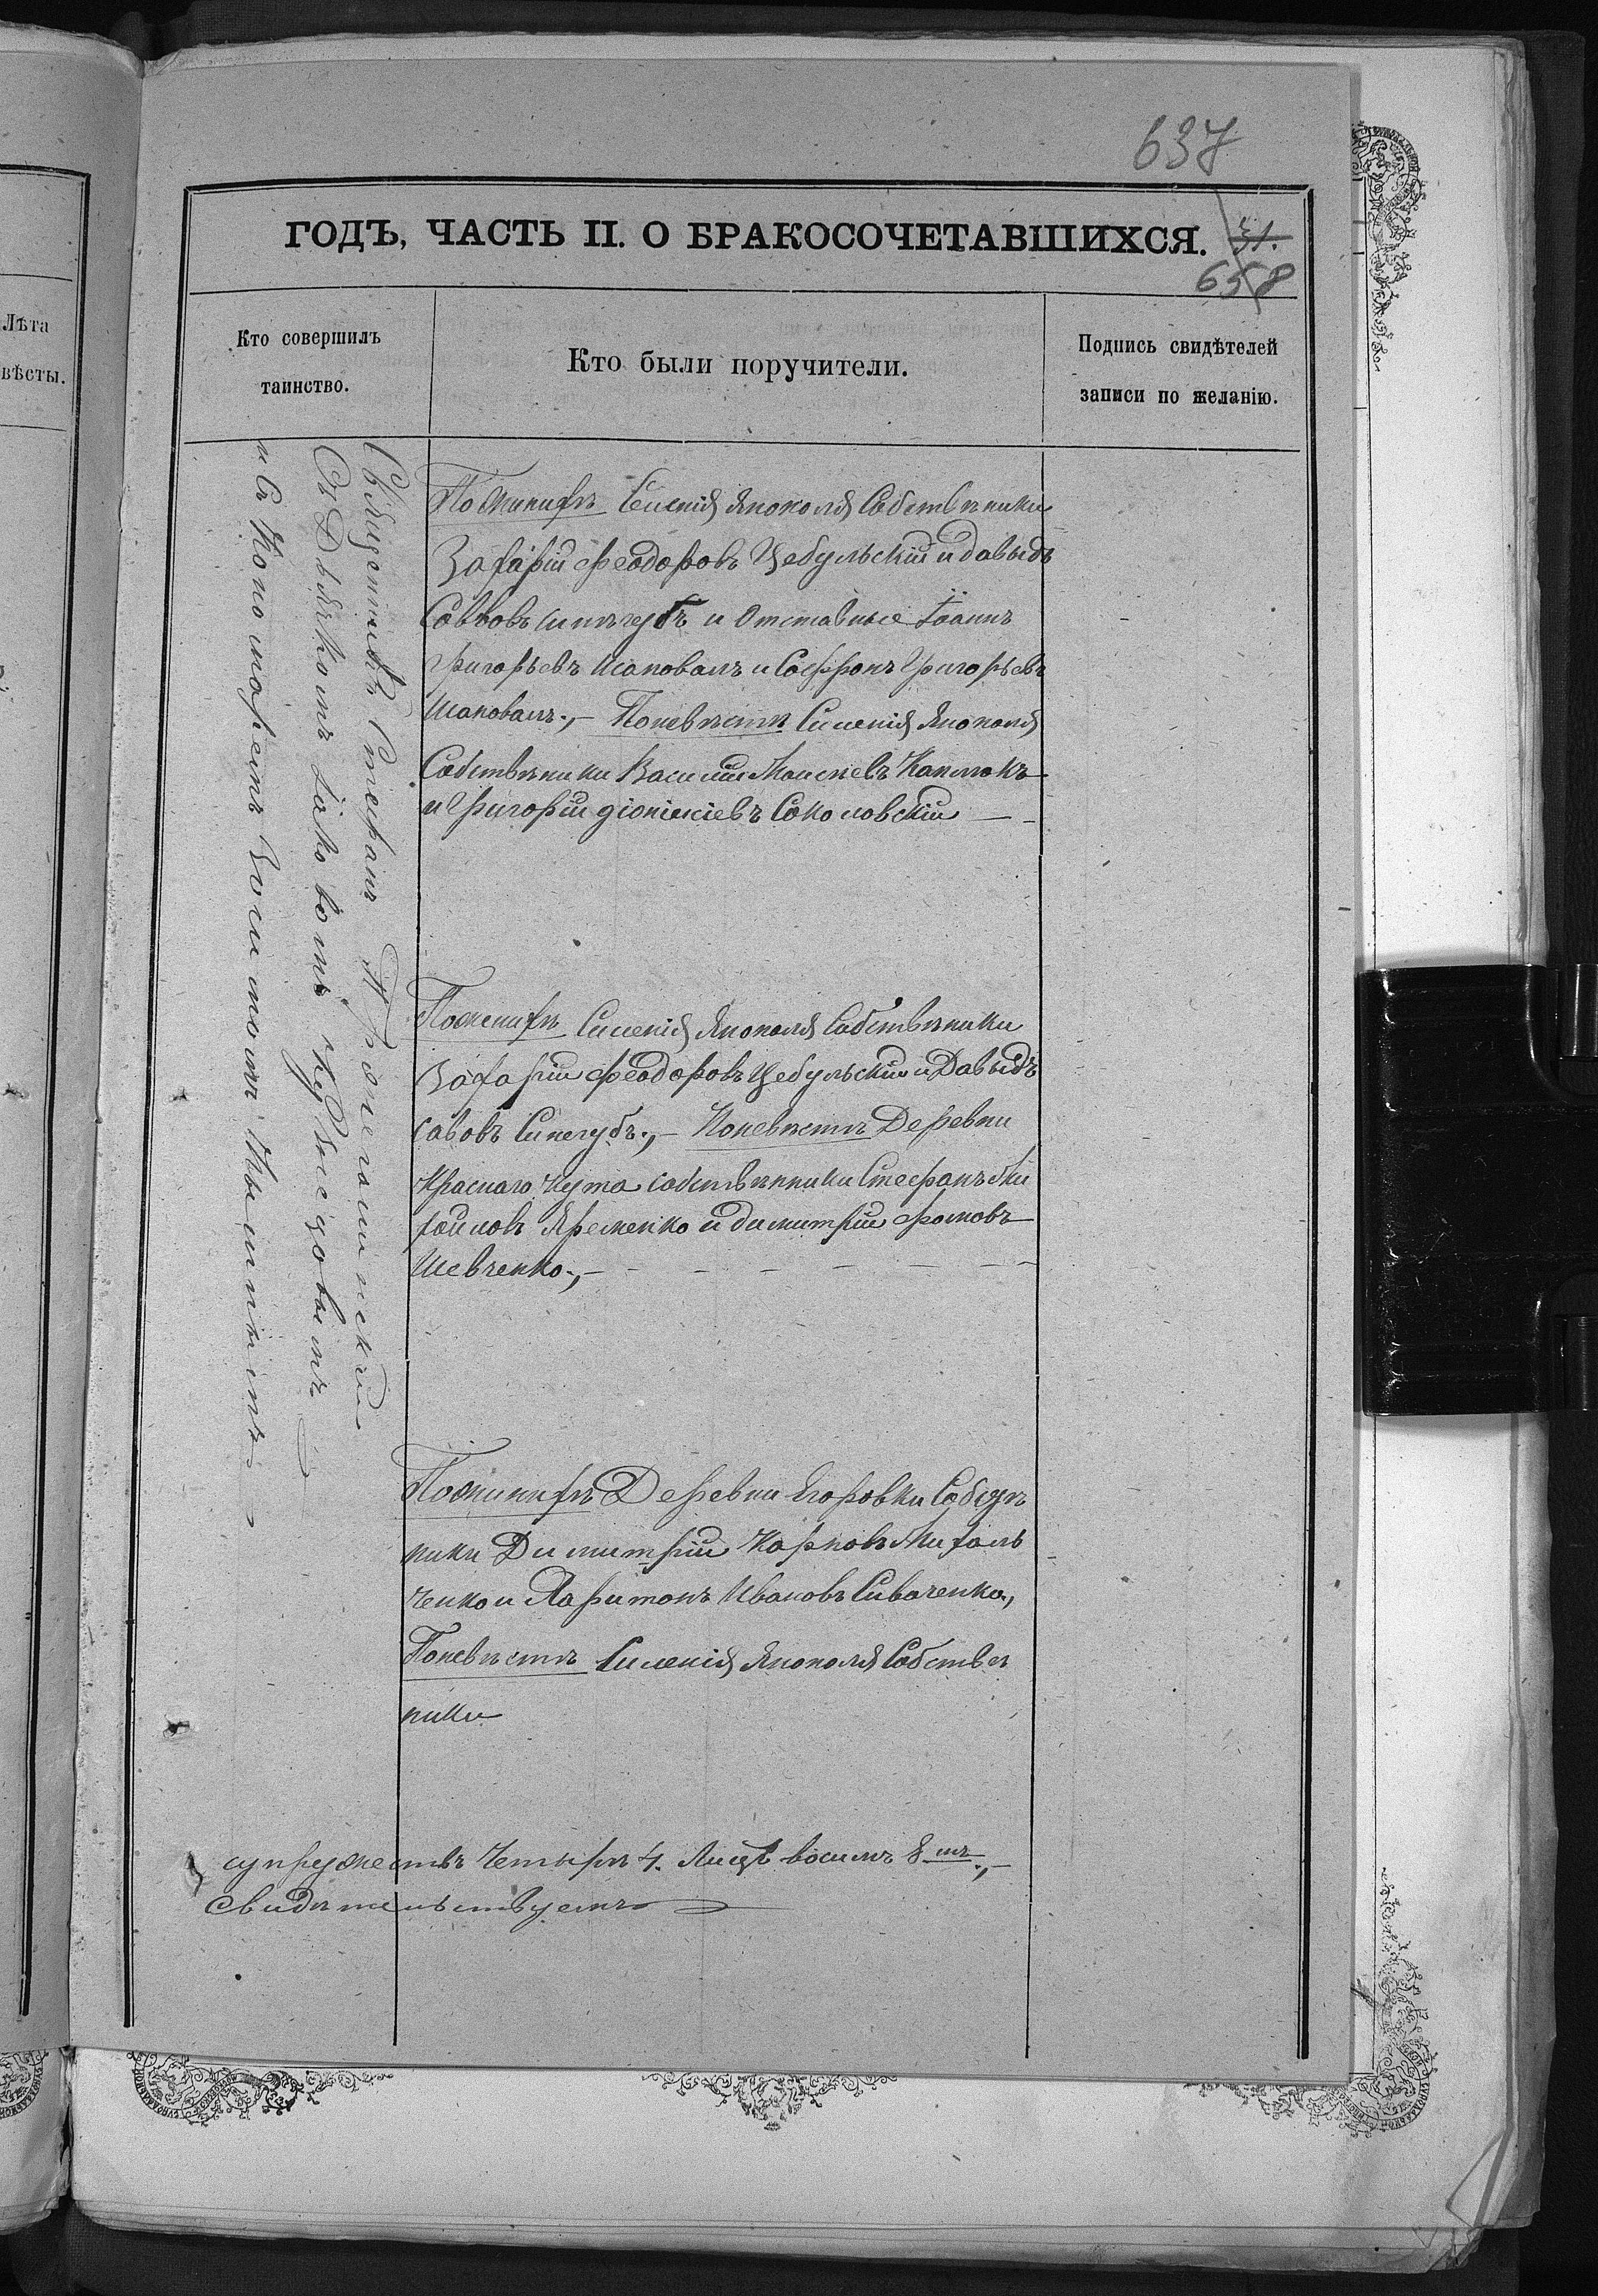 637
ГОДЪ, ЧАСТЬ II. О БРАКОСОЧЕТАВШИХСЯ.
31.
658
Лѣта
вѣсты.
Кто совершилъ
таинство.
Кто были поручители.
Подпись свидѣтелей
записи по желанію.
Священникъ Стефанъ
Съ Дьячкомъ Іаковомъ
и съ Пономаремъ
По женихѣ Селенія Янополя Собствѣники
Захарій Феодоровъ Цебульскій и давыдъ
Саввовъ Синѣгубъ и Отставные Іоаннъ
Григорьевъ Шаповалъ и Софронъ Григорьевъ
Шаповалъ.,— Поневѣстѣ Силенія Янополя
Собствѣники Василій Моисѣевъ
и Григорій діонисіевъ Соколовскій
Поженихѣ Силенія Янополя Собствѣники
Захарій Феодоровъ Цебульскій и Давыдъ
Савовъ Синегубъ.,— Поневѣстѣ Деревни
Краснаго Кута собствѣнники Стефанъ Ми
хайловъ Яременко и димитрій Фомовъ
Шевченко.,—
Поженихѣ Деревни Егоровки Собств
ники Димитрій Карповъ Михаль
ченко и Харитонъ Ивановъ Сиваченко.,
Поневѣстѣ Силенія Янополя Собствѣ
ники
супружествъ Четырѣ 4. Лицъ восимъ 8мъ.,—
Свидѣтельствуемъ